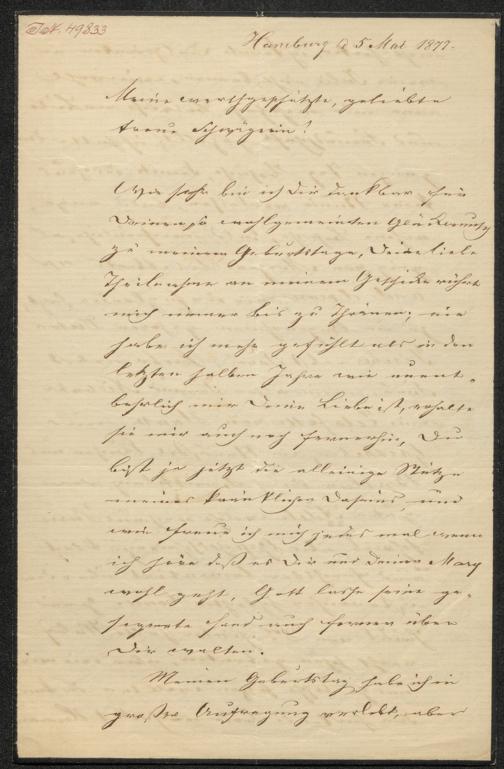 I.N. 49833
Hamburg d 5 Mai 1877.
Meine werthgeschätzte, geliebte
treue Schwägerin!
Wie sehr bin ich Dir dankbar für
Deinen so wohlgemeinten Glückwunsch
zu meinem Geburtstage, Deine liebe
Theilnahme an meinem Geschicke rührt
mich immer bis zu Thränen; nie
habe ich mehr gefühlt als in den
letzten halben Jahre wie unent-
behrlich mir Deine Liebe ist, erhalte
sie mir auch noch fernerhin, Du
bist ja jetzt die alleinige Stütze
meines kränklichen Daseins, und
wie freue ich mich jedes mal wenn
ich höre daß es Dir und Deiner Mary
wohl geht, Gott lasse seine ge-
segnete Hand auch ferner über
Dir walten.
Meinen Geburtstag habe ich in
großer Aufregung verlebt, aber